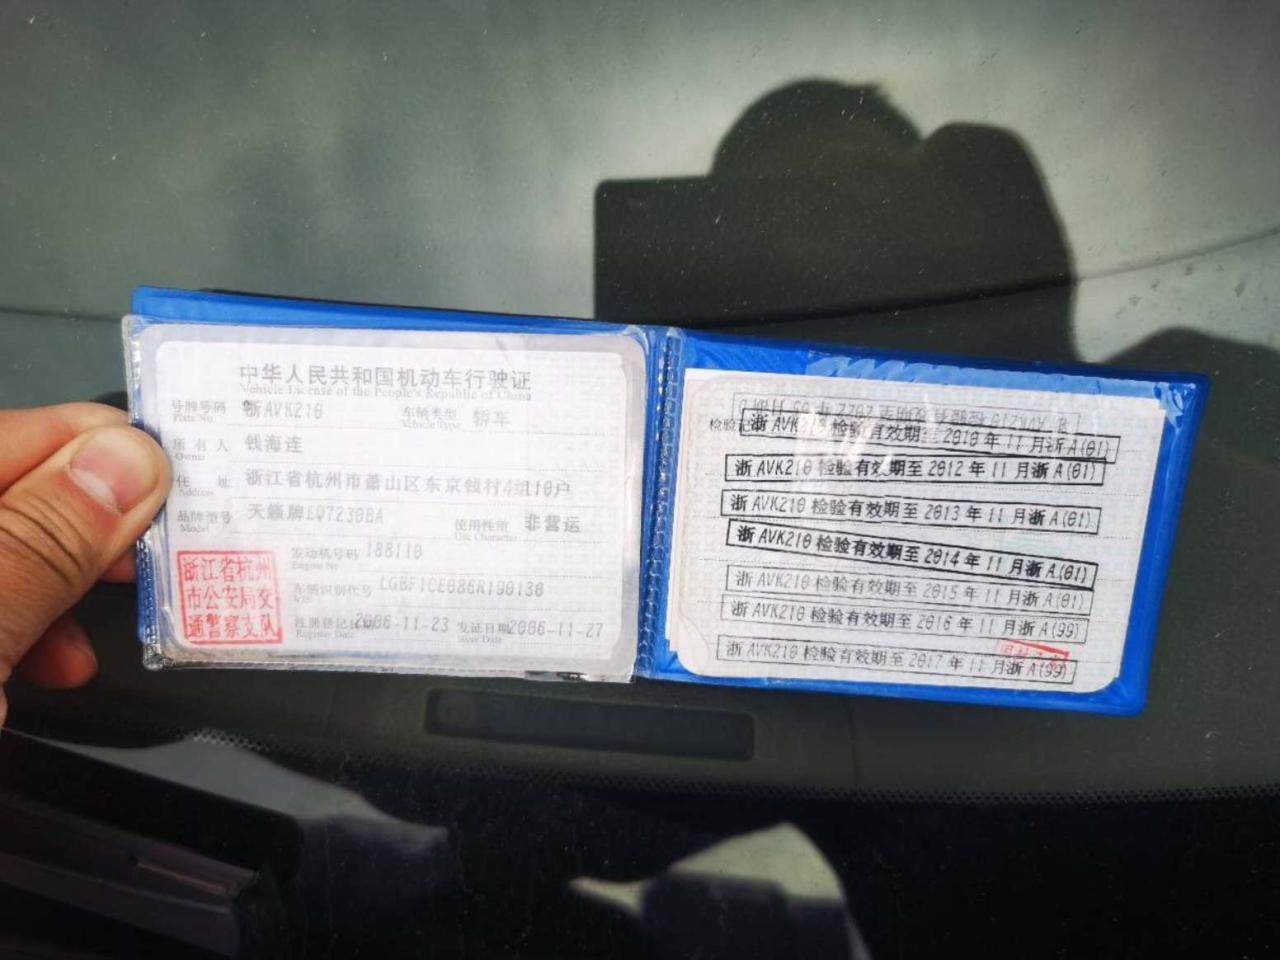 中华人民共和国机动车行驶证
Vehicle License of the People's Republic of China
号牌号码 浙AVK210 车辆类型 轿车
Plate No. Vehicle Type
所有人 钱海连
Owner
住址 浙江省杭州市萧山区东京钱村4组110户
Address
品牌型号 天籁牌EQ7230BA 使用性质 非营运
Model Use Character
发动机号码 188110
Engine No
车辆识别代号 LGBF1CE086R190130
VIN
注册登记日期 2006-11-23 发证日期 2006-11-27
Register Date Issue Date
浙江省杭州
市公安局交
通警察支队
检验记
浙AVK210检验有效期至2010年11月浙A(01)
浙AVK210检验有效期至2012年11月浙A(01)
浙AVK210检验有效期至2013年11月浙A(01)
浙AVK210检验有效期至2014年11月浙A(01)
浙AVK210检验有效期至2015年11月浙A(01)
浙AVK210检验有效期至2016年11月浙A(99)
浙AVK210检验有效期至2017年11月浙A(99)